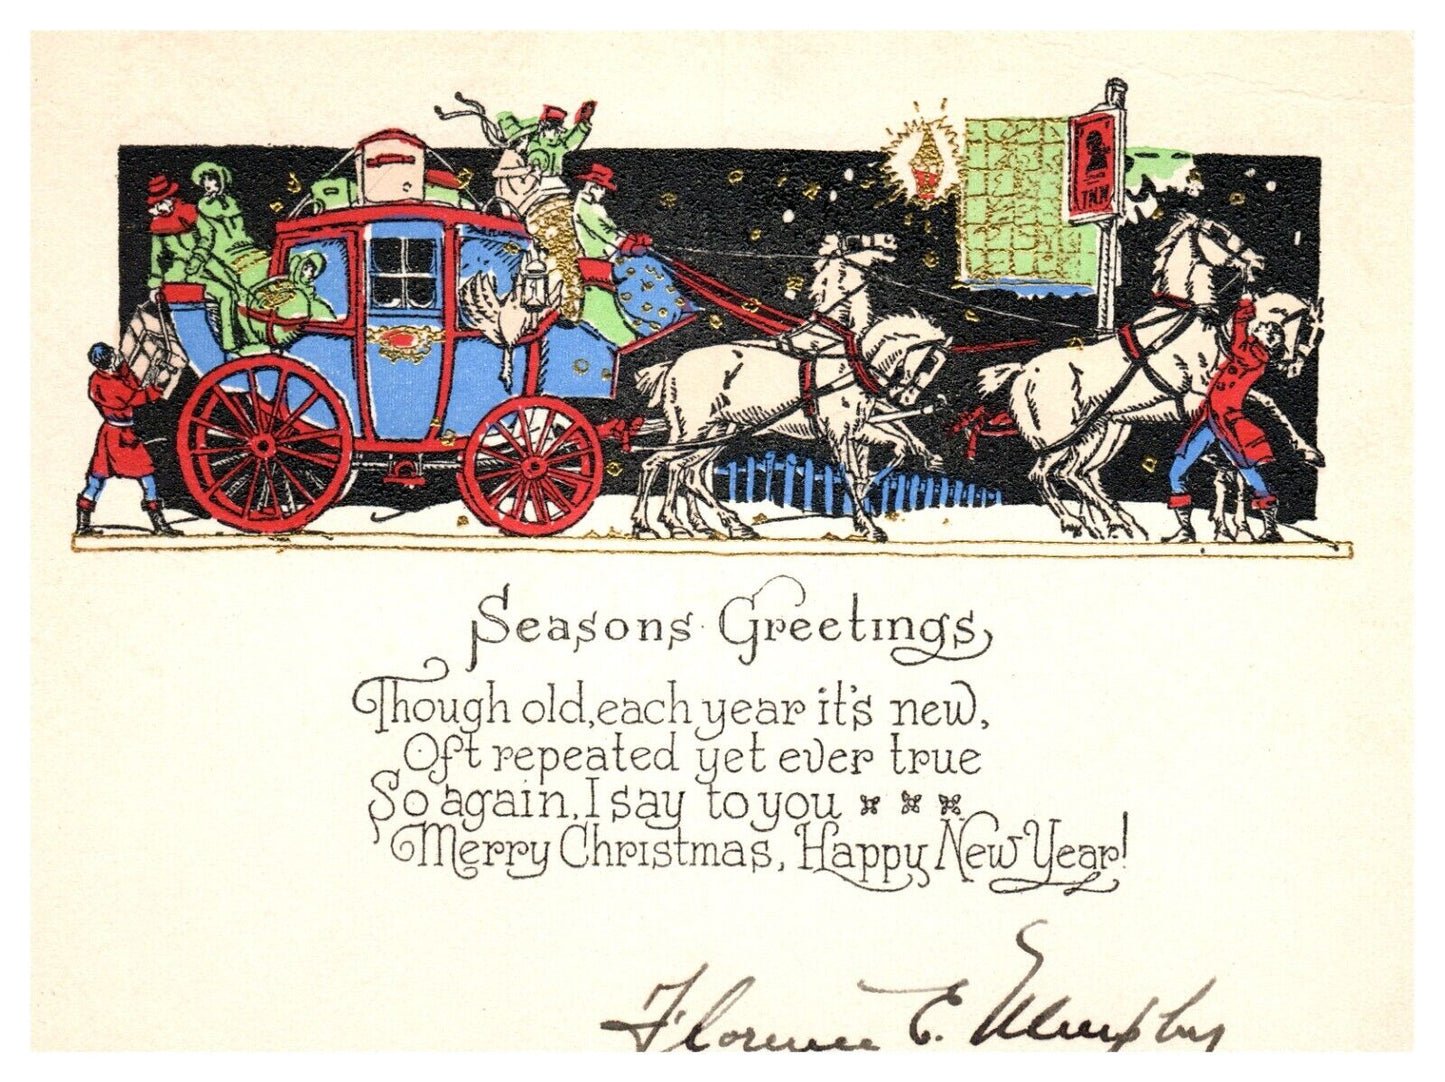 INN
Seasons Greetings
Though old, each year it's new,
Oft repeated yet ever true
So again, I say to you
Merry Christmas, Happy New Year!
Florence E. Murphy